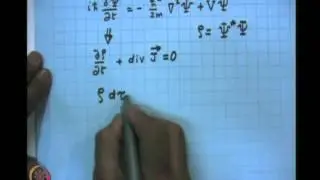 iℏ ∂Ψ/∂t = - ℏ²/2m ∇²Ψ + VΨ
⇓ ρ = Ψ*Ψ
∂ρ/∂t + div J⃗ = 0
ρ dτ